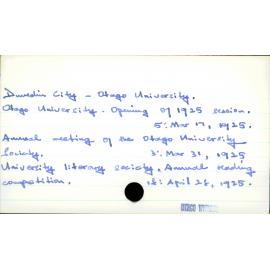 Dunedin City - Otago University.
Otago University. Opening of 1925 session.
5: Mar 17, 1925.
Annual meeting of the Otago University
Society. 3: Mar 31, 1925
University literary society, Annual reading
competition. April 28, 1925.
OTAGO